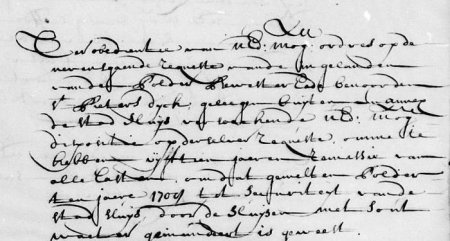 Ter obedientie van UE: Mog: ordres op de
nevensgaende requeste vande Ingelanden
vanden Polder Bewesten Eede benoorden
St Pieters dyck, geleegen buyten en annex
de stad Sluys versoeckende UE: Mog:
dispositie op deselve requeste, omme te
hebben vyfthien jaeren remissie van
alle Lasten, omdat gemelten Polder
en jaere 1708 tot securiteit vande
stad Sluys, door de Sluysen met sout
water geinundeert is geweest.